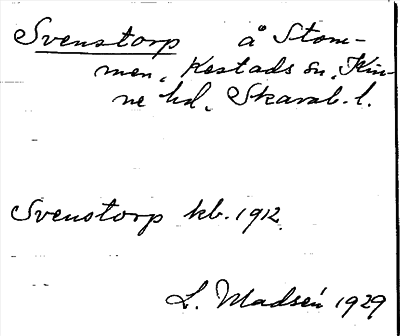 Svenstorp å Stom-
men, Kestads sn, Kin-
ne hd, Skarab. l.
Svenstorp kb. 1912
L. Madsén 1929